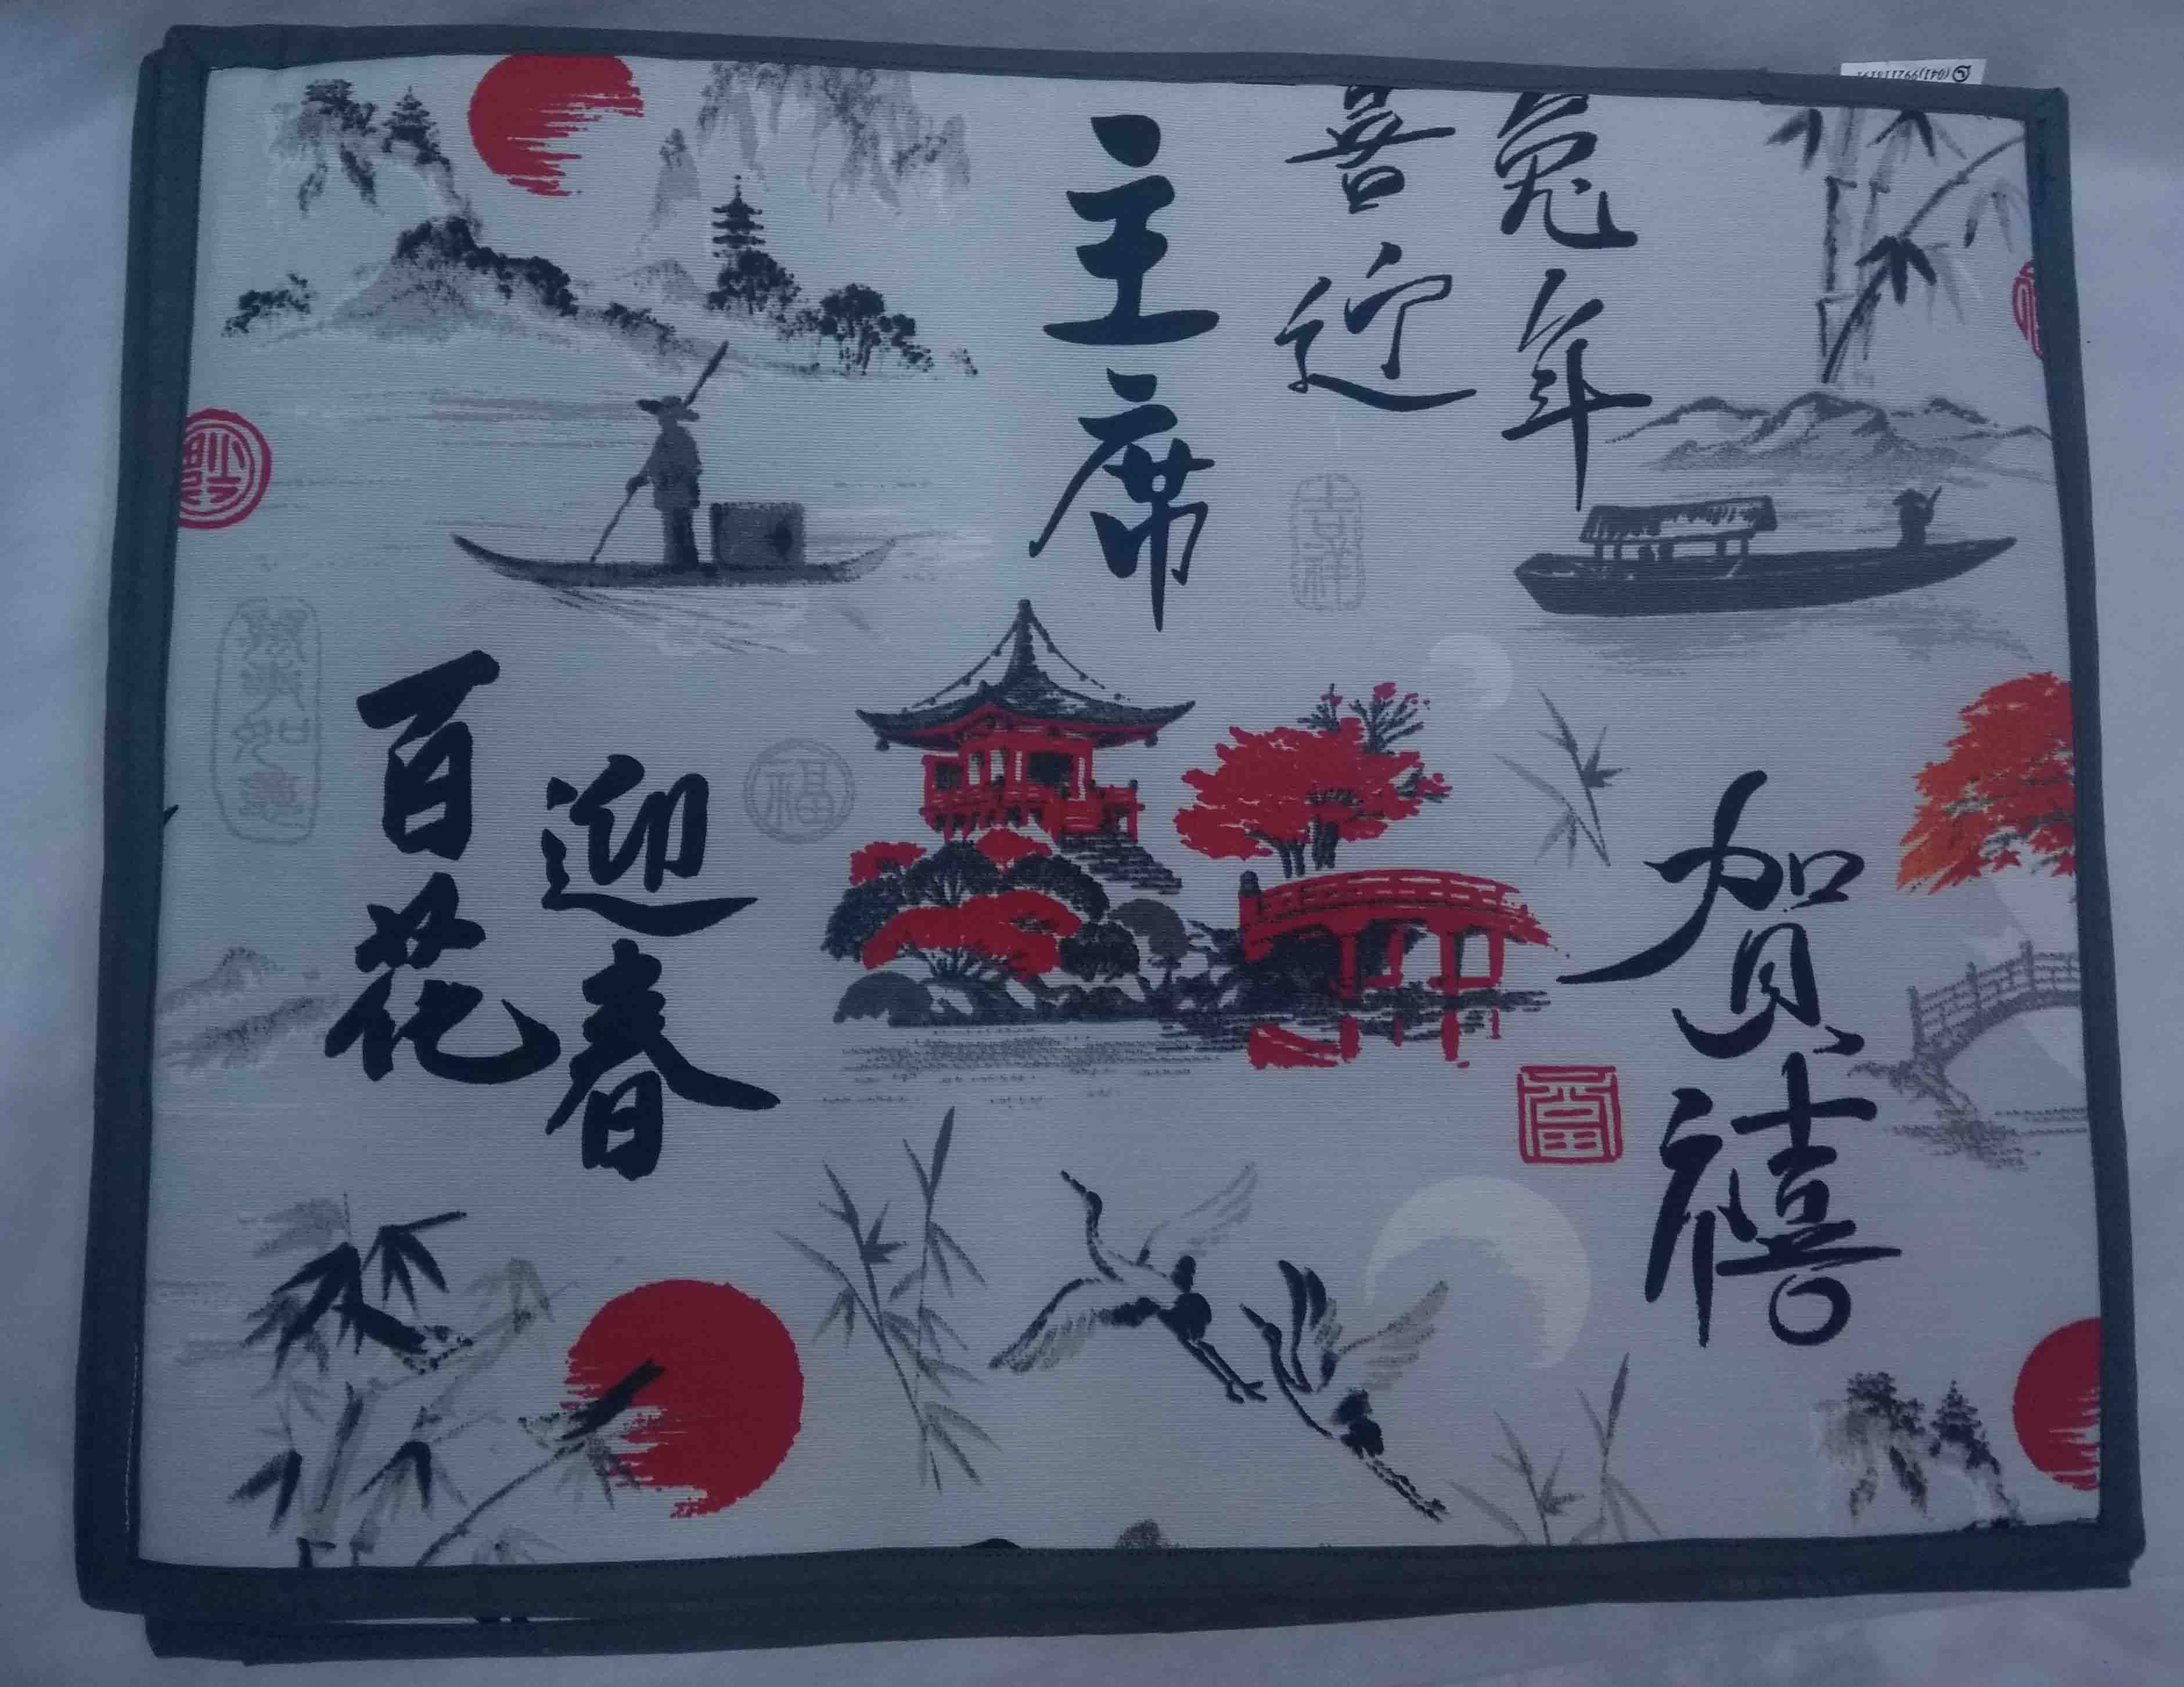 主席
喜迎
兔年
百花
迎春
賀禧
福
吉祥
富